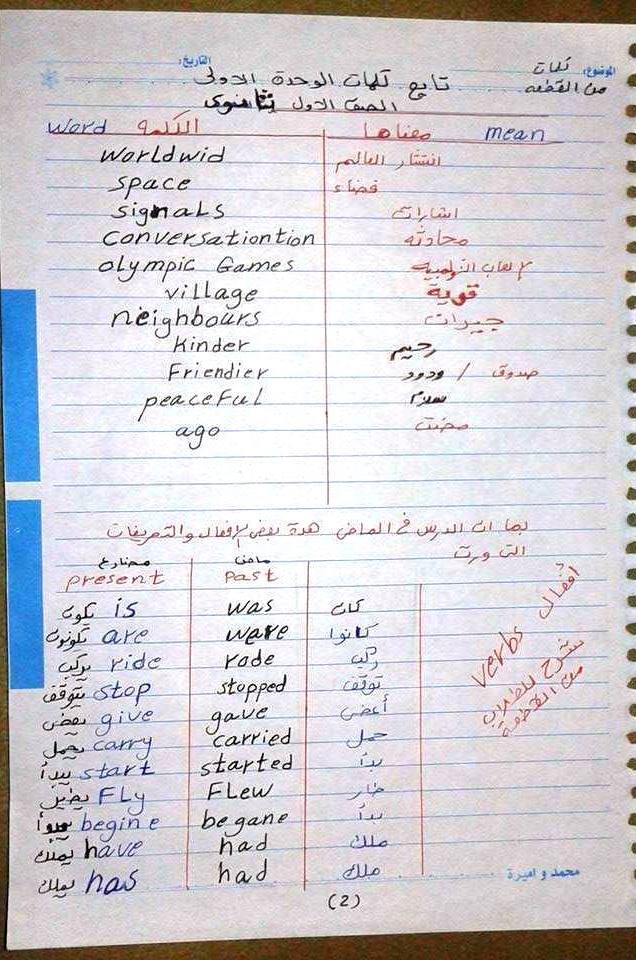 الموضوع: كلمات من القطعه التاريخ:
تابع كلمات الوحدة الاولى
الصف الاول ثانوى
word الكلمه معناها mean
worldwid انتشار العالم
space فضاء
signals اشارات
conversationtion محادثه
olympic Games الالعاب الاولمبيه
village قرية
neighbours جيران
kinder رحيم
Friendier صدوق / ودود
peaceful سلام
ago مضت
بما ان الدرس في الماضى هذة بعض الافعال والتصريفات
التى وردت
مضارع ماضى
present past
يكون is was كان
يكونون are were كانوا
يركب ride rode ركب
يتوقف stop stopped توقف
يعضى give gave أعضى
يحمل carry carried حمل
يبدأ start started بدأ
يطير FLy FLew طار
يبدأ begine begane بدأ
يملك have had ملك
يملك has had ملك
أفعال verbs
تشرح للطلاب
من القطعة
محمد و اميرة
(2)